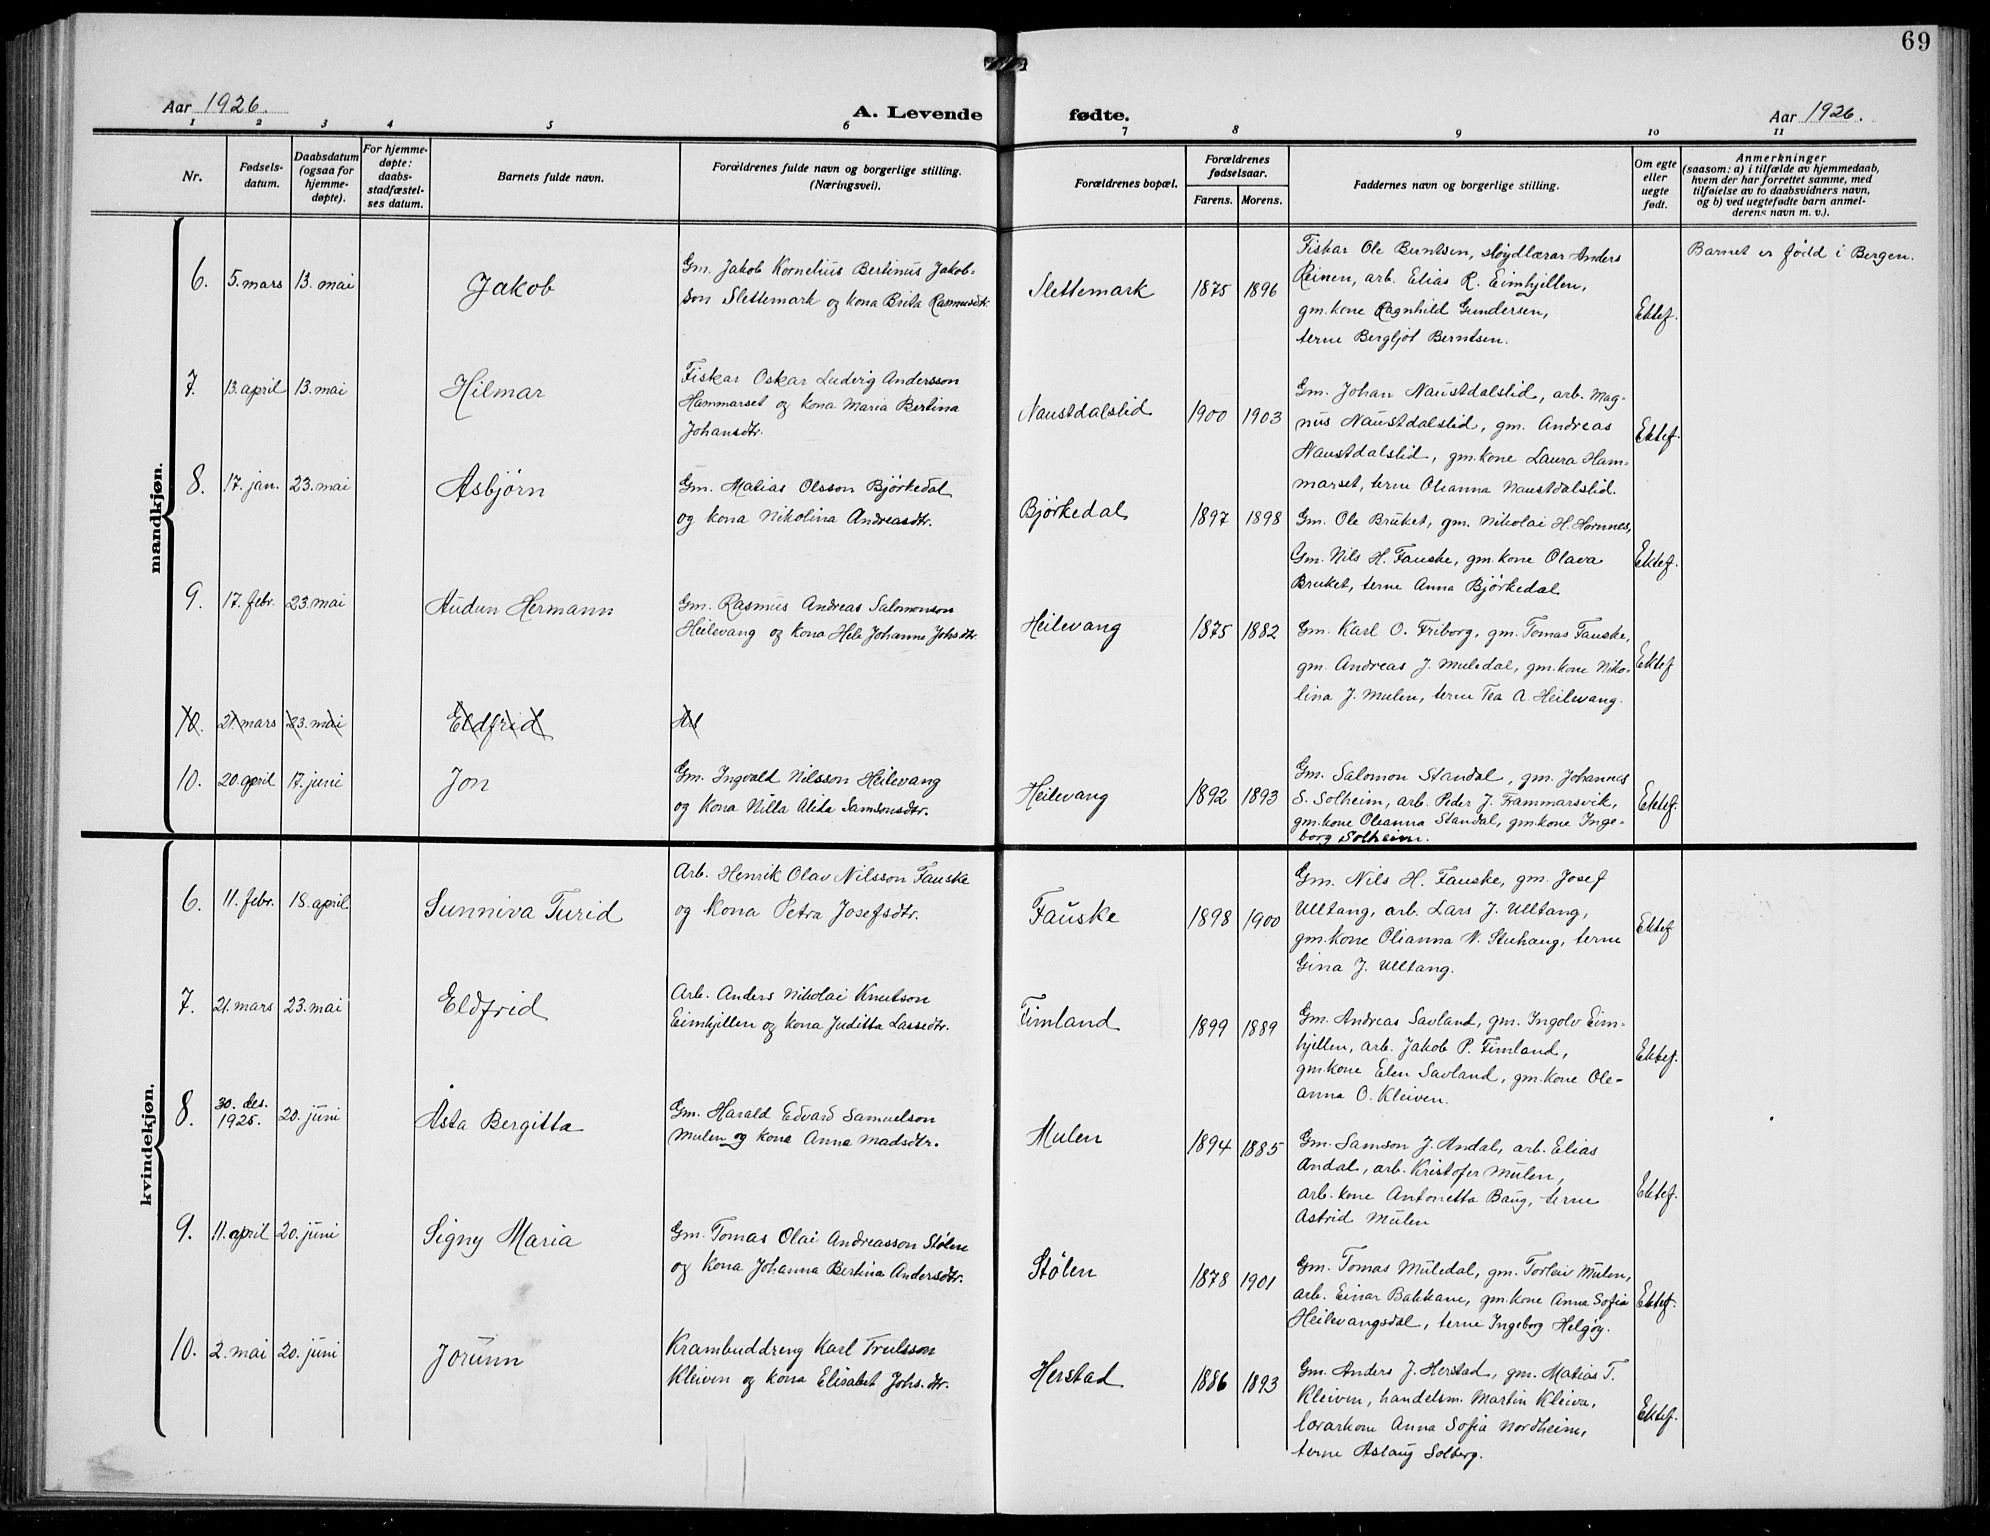 69
Aar 1926.
A. Levende fødte.
Aar 1926.
1 2 3 4 5 6 7 8 9 10 11
Nr.
Fødsels-
datum.
Daabsdatum
(ogsaa for
hjemme-
døpte).
For hjemme-
døpte:
daabs-
stadfæstel-
ses datum.
Barnets fulde navn.
Forældrenes fulde navn og borgerlige stilling.
(Næringsvei).
Forældrenes bopæl.
Forældrenes
fødselsaar.
Farens. Morens.
Faddernes navn og borgerlige stilling.
Om egte
eller
uegte
født.
Anmerkninger
(saasom: a) i tilfælde av hjemmedaab,
hvem der har forrettet samme, med
tilføielse av to daabsvidners navn,
og b) ved uegtefødte barn anmel-
derens navn m. v.).
mandkjøn.
6. 5. mars 13. mai
Jakob
Gm. Jakob Kornelius Bertinus Jakob-
son Slettemark og kona Brita Rasmusdtr.
Slettemark
1875 1896
Fiskar Ole Berntsen, sløydlærar Anders
Reinen, arb. Elias R. Eimhjellen,
gm.kone Ragnhild Gundersen,
terne Bergljot Berntsen.
Ektef.
Barnet er fødd i Bergen.
7. 13. april 13. mai
Hilmar
Fiskar Oskar Ludvig Andersson
Hammarset og kona Maria Bertina
Johansdtr.
Naustdalslid
1900 1903
Gm. Johan Naustdalslid, arb. Mag-
nus Naustdalslid, gm. Andreas
Naustdalslid, gm.kone Laura Ham-
marset, terne Oleanna Naustdalslid.
Ektef.
8. 17. jan. 23. mai
Asbjørn
Gm. Matias Olsson Bjørkedal
og kona Nikolina Andreasdtr.
Bjørkedal
1897 1898
Gm. Ole Bruket, gm. Nikolai H. Hornnes,
Gm. Nils H. Fauske, gm.kone Olava
Bruket, terne Anna Bjørkedal
Ektef.
9. 17. febr. 23. mai
Audun Hermann
Gm. Rasmus Andreas Salomonson
Heilevang og kona Hele Johanne Johsdtr
Heilevang
1875 1882
Gm. Karl O. Friborg, gm. Tomas Fauske,
gm. Andreas J. Muledal, gm.kone Niko-
lina J. Mulen, terne Tea A. Heilevang.
Ektef
10. 21. mars 23. mai
Eldfrid
10. 20. april 17. juni
Jon
Gm. Ingvald Nilsson Heilevang
og kona Nilla Alida Samsonsdtr.
Heilevang
1892 1893
Gm. Salomon Standal, gm. Johannes
S. Solheim, arb. Peder J. Frammarsvik,
gm.kone Oleanna Standal, gm.kone Inge-
borg Solheim.
Ektef.
kvindekjøn.
6. 11. febr. 18. april
Sunniva Turid
Arb. Henrik Olav Nilsson Fauske
og kona Petra Josefsdtr.
Fauske
1898 1900
Gm. Nils H. Fauske, gm. Josef
Ulltang, arb. Lars J. Ulltang,
gm.kone Olianna N. Stuhaug, terne
Gina J. Ulltang.
Ektef
7. 21. mars 23. mai
Eldfrid
Arb. Anders Nikolai Knutson
Eimhjellen og kona Juditta Lassedtr.
Fimland
1899 1889
Gm. Andreas Savland, gm. Ingolv Eim-
hjellen, arb. Jakob P. Fimland,
gm.kone Elen Savland, gm.kone Ole-
anna O. Kleiven.
Ektef.
8. 30. des.
1925. 20. juni
Åsta Bergitta
Gm. Harald Edvard Samuelson
Mulen og kona Anna Madsdtr.
Mulen
1894 1885
Gm. Samson J. Andal, arb. Elias
Andal, arb. Kristofer Mulen,
arb. kone Antonetta Baug, terne
Astrid Mulen
Ektef.
9. 11. april 20. juni
Signy Maria
Gm. Tomas Olai Andreasson Stølen
og kona Johanna Bertina Andersdtr.
Stølen
1878 1901
Gm. Tomas Muledal, gm. Torleiv Mulen,
arb. Einar Bakkane, gm.kone Anna Sofia
Heilevangsdal, terne Ingeborg Helgøy.
Ektef.
10. 2. mai 20. juni
Jorunn
Krambuddreng Karl Trulsson
Kleiven og kona Elisabet Johs.dtr.
Herstad
1886 1893
Gm. Anders J. Herstad, gm. Matias T.
Kleiven, handelsm. Martin Kleiva,
lærarkone Anna Sofia Nordheim,
terne Aslaug Solberg.
Ektef.